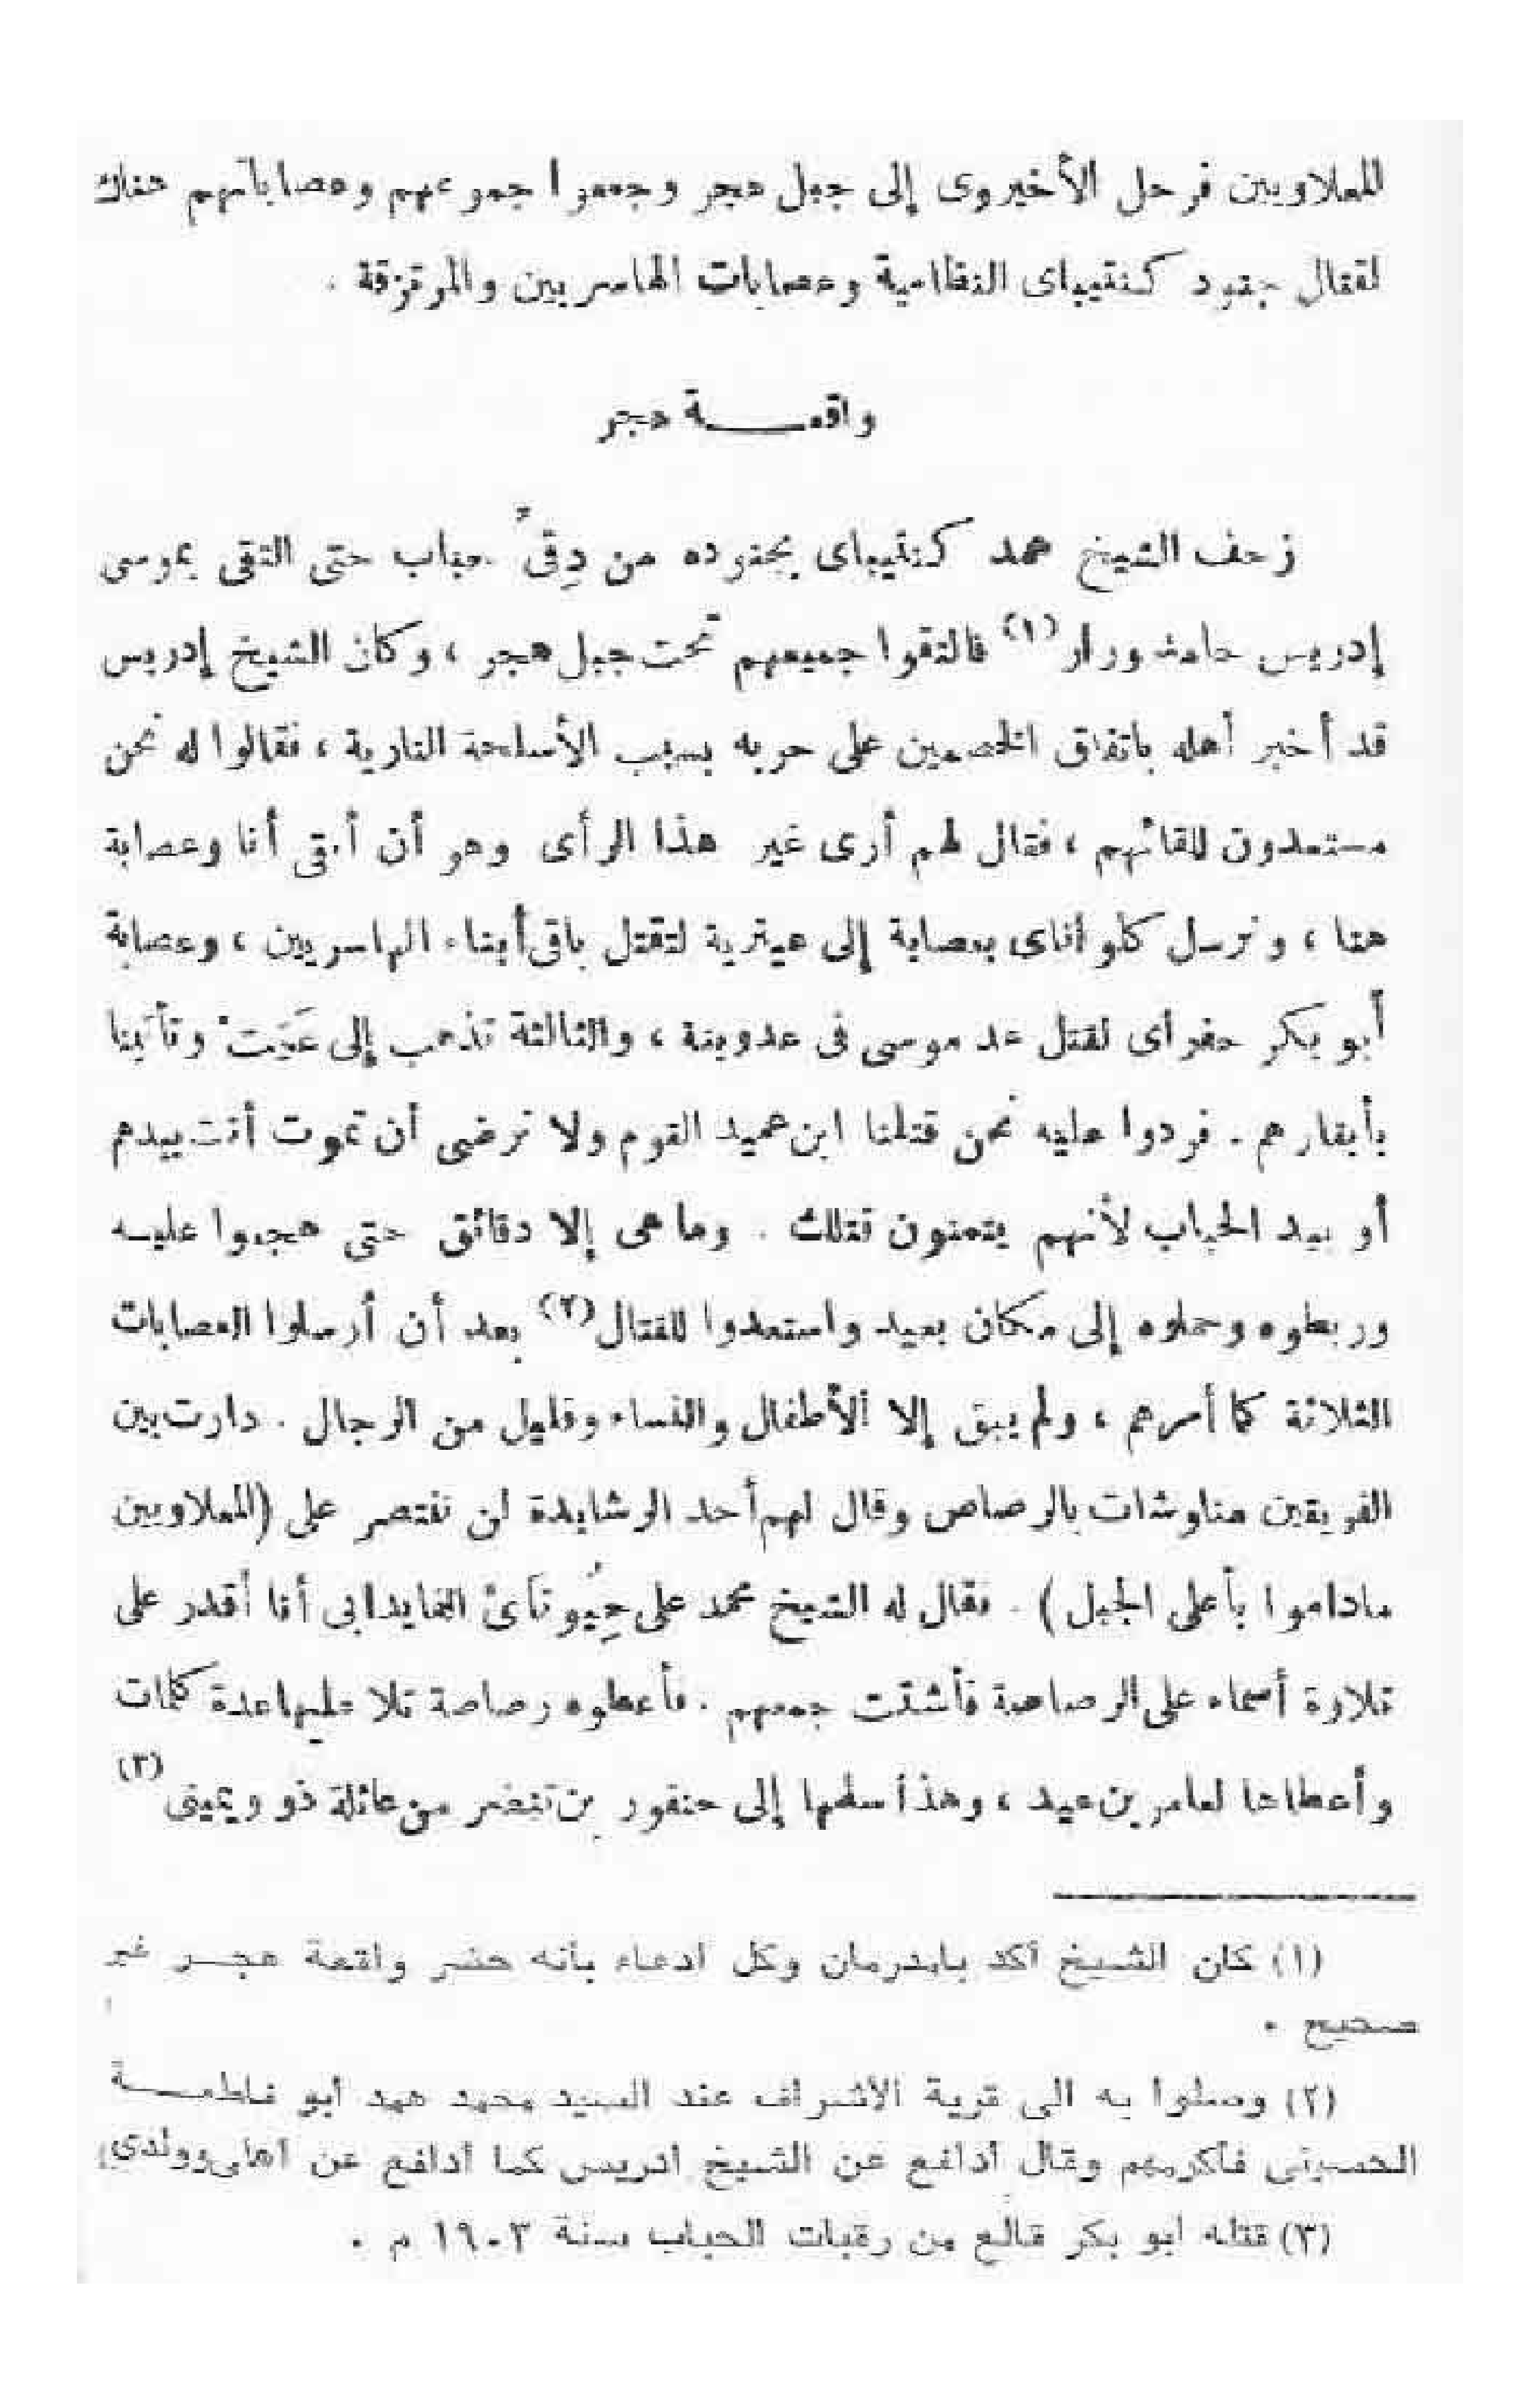 للمعلاويين فرحل الأخيروى إلى جبل هجر وجمعوا جموعهم وعصاباتهم هناك
لقتال جنود كنتيباى النظامية وعصابات الهاسريين والمرتزقة .
واقعـــة هجر
زحف الشيخ حمد كنتيباى بجنوده من دِقىً حباب حتى التقى بموسى
إدريس حامد ورار (١) فالتقوا جميعهم تحت جبل هجر ، وكان الشيخ إدريس
قد أخبر أهله باتفاق الخصمين على حربه بسبب الأسلحة النارية ، فقالوا له نحن
مستعدون للقائهم ، فقال لهم أرى غير هذا الرأى وهو أن أبقى أنا وعصابة
هنا ، ونرسل كلو أناى بعصابة إلى عيترية لتقتل باقى أبناء الهاسريين ، وعصابة
أبو بكر حفر أى لقتل عد موسى فى عدوبنة ، والثالثة تذهب إلى وتأتينا
بأبقارهم . فردوا عليه نحن قتلنا ابن عميد القوم ولا نرضى أن تموت أنت بيدهم
أو بيد الحباب لأنهم يتمنون قتلك . وما هى إلا دقائق حتى هجموا عليــه
وربطوه وحملوه إلى مكان بعيد واستعدوا للقتال (٢) بعد أن أرسلوا العصابات
الثلاثة كما أمرهم ، ولم يبق إلا الأطفال والنساء وقليل من الرجال . دارت بين
الفريقين مناوشات بالرصاص وقال لهم أحد الرشايدة لن نقتصر على (المعلاويين
ماداموا بأعلى الجبل) . فقال له الشيخ محمد على أنا أقدر على
تلاوة أسماء على الرصاصة فأشتت جمعهم . فأعطوه رصاصة تلا عليها عدة كلمات
وأعطاها لعامر بن عيد ، وهذا سلمها إلى حنقور بن من عائلة ذو ويمينى (٣)
(١) كان الشيخ أكد بامدرمان وكل ادعاء بأنه حضر واقعة هجــر غير
صحيح .
(٢) وصلوا به الى قرية الأشراف عند السيد محمد حمد أبو فاطمـــة
الحسينى فأكرمهم وقال أدافع عن الشيخ ادريس كما أدافع عن أهلى وولدى
(٣) قتله ابو بكر قالع من رقبات الحباب سنة ١٩٠٣ م .